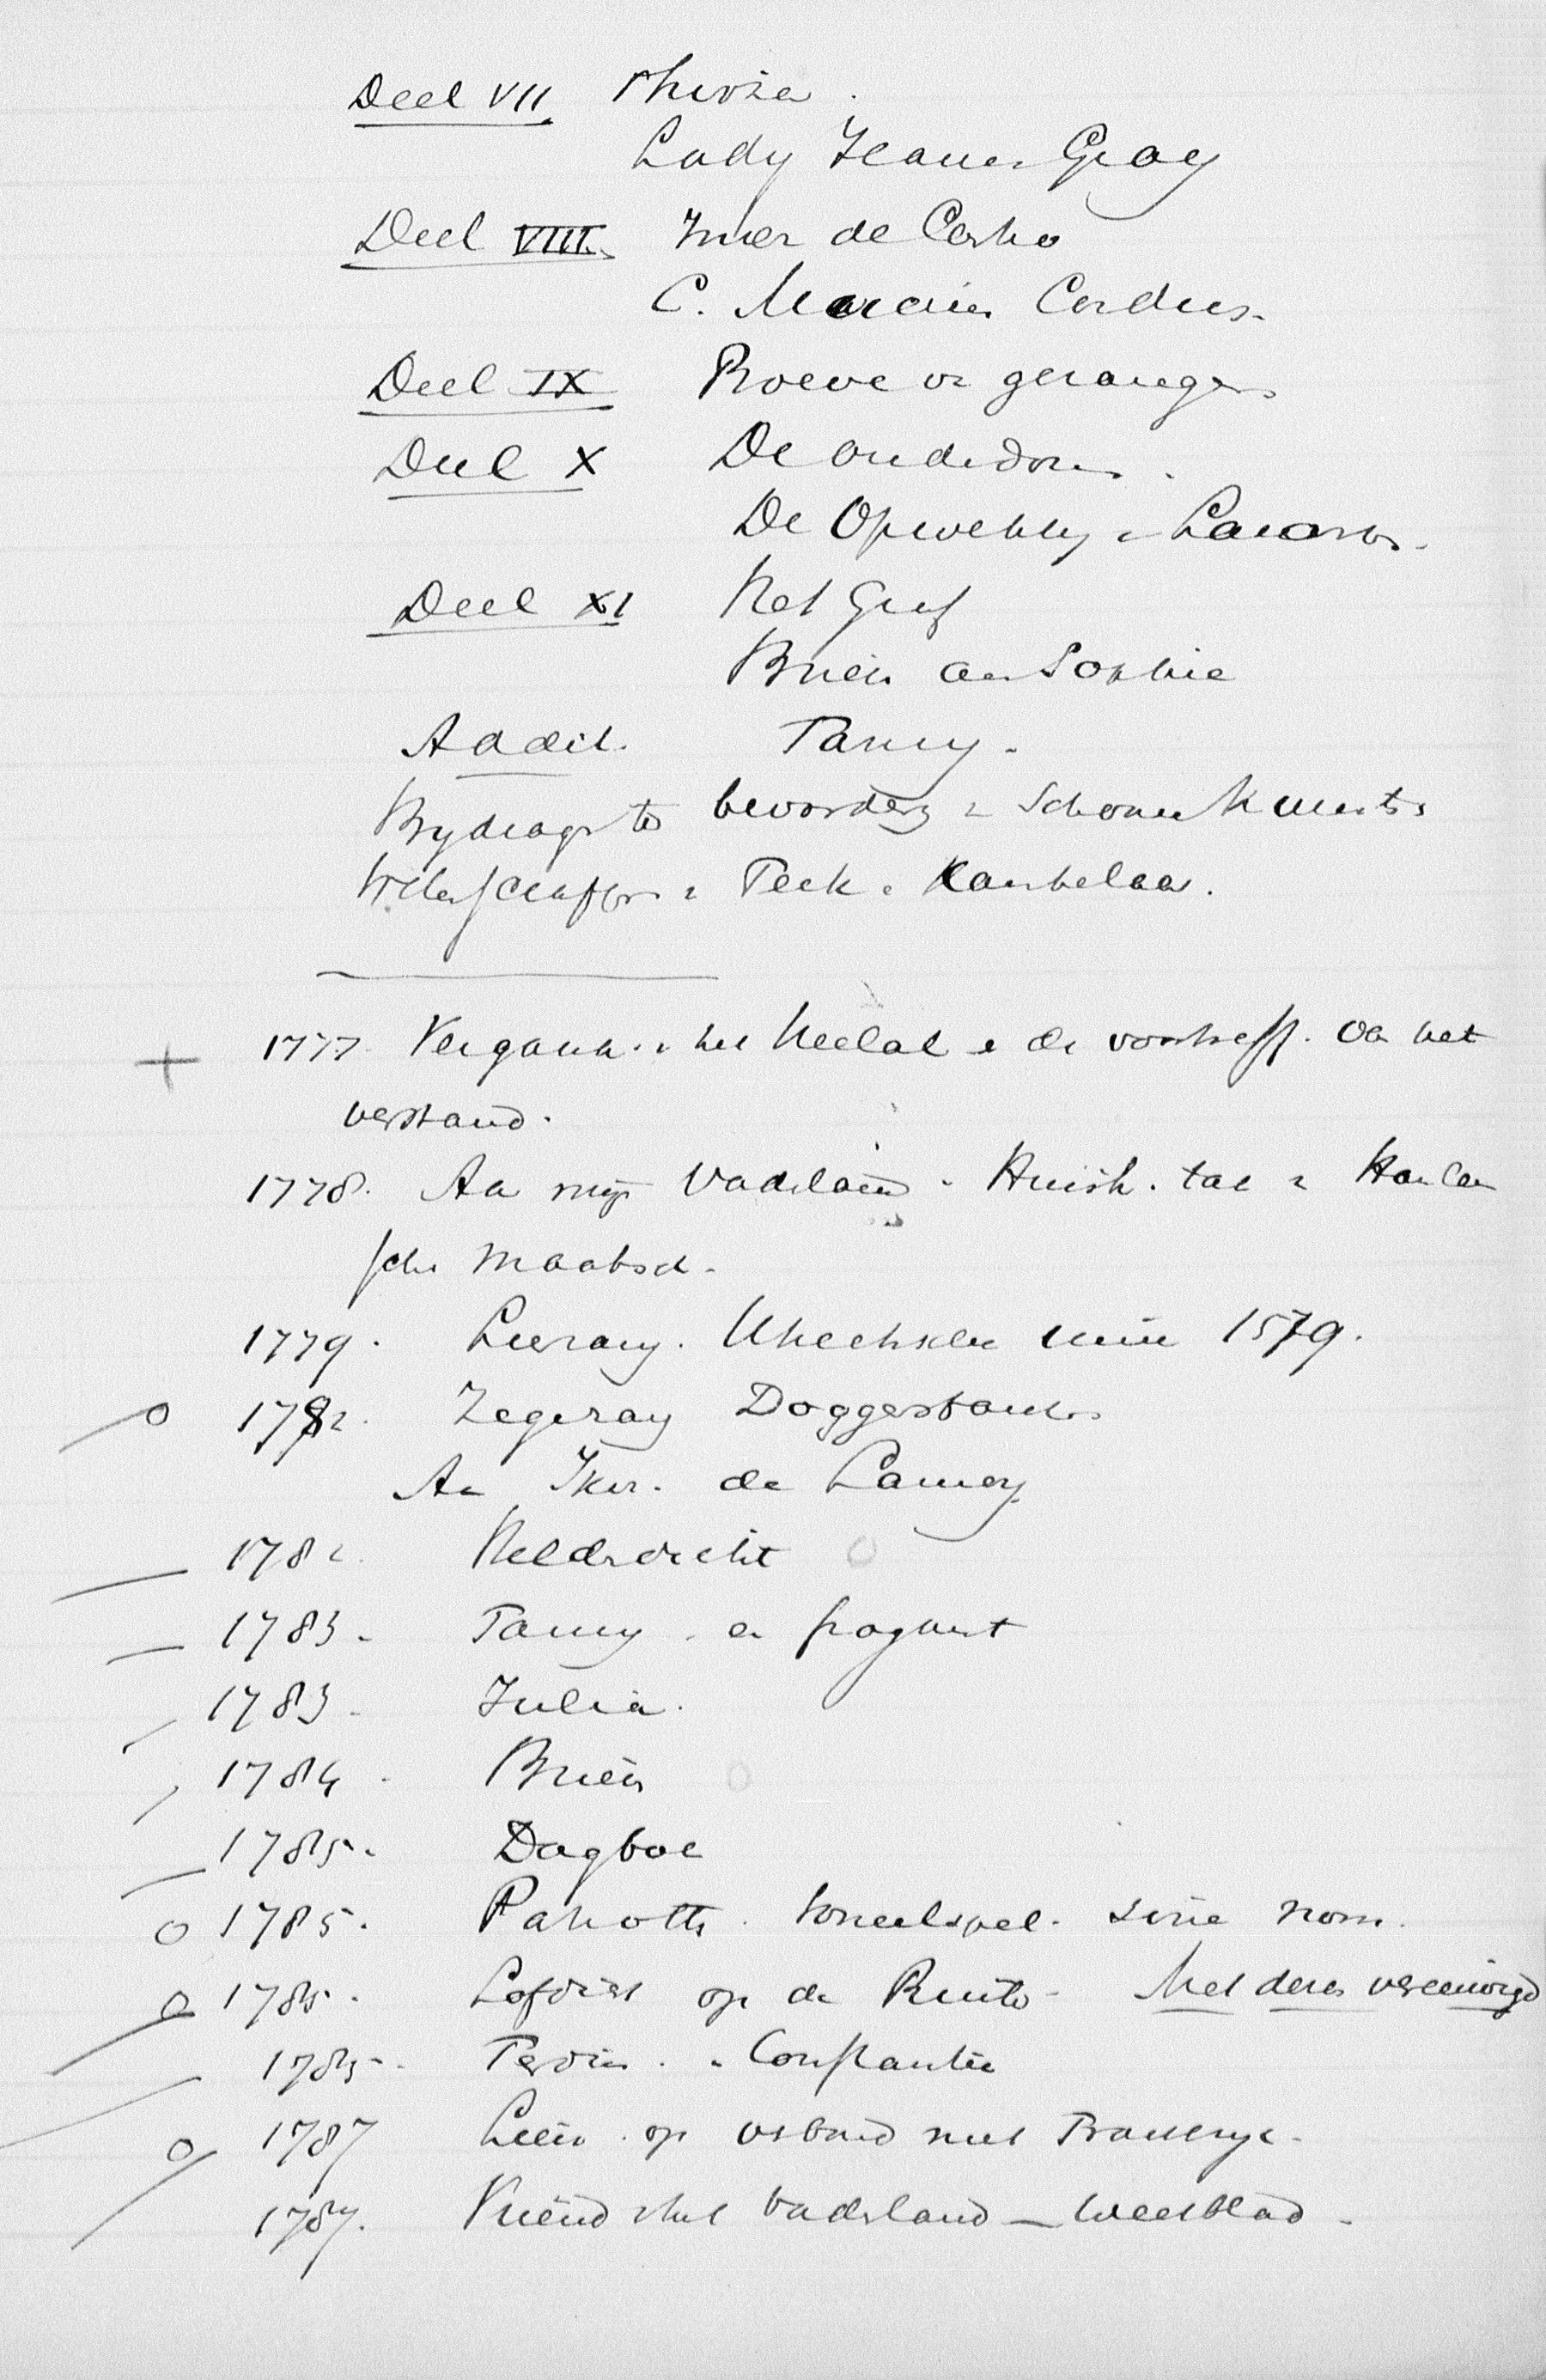 Deel VII Thirsa.
Lady Jeane Gray
Deel VIII. Ines de Castro
C. Marcius Cordus.
Deel IX Proeve v gezangen
Deel X De ouderdom.
De Opwekking v Lazarus.
Deel XI Het Graf
Brieven aan Sophie
Addit. Fanny.
Bydrage tot bevorderg v Schoone Kunsten
Wetenschappen v Feith en Kantelaar.
1777. Vergank. v het Heelal & de voortreff. van het
verstand.
1778. Aan mijn Vaderland. Huish. tak v Haarlem
sche Maatsch.
1779. Lierzang. Utrechtsche Unie 1579.
1782. Zegezang Doggersbank
Aan Jkvr. de Lannoy.
1782. Heldendicht
1783. Fanny. een fragment
1783. Julia.
1784. Brieven
1785. Dagboe
1785. Patriotten. toneelspel. sine nom.
1785. Lofdicht op de Ruiter Met deze vereenigd
1785. Ferdin. . Constantia
1787 Lied op verbond met Frankryk.
1787. Vriend v het Vaderland — Weekblad.